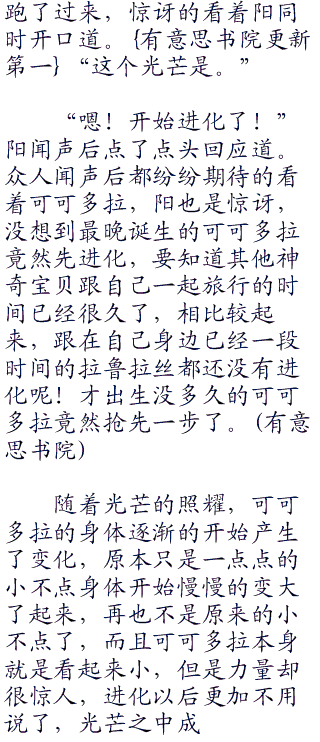 跑了过来，惊讶的看着阳同
时开口道。{有意思书院更新
第一}“这个光芒是。”
“嗯！开始进化了！”
阳闻声后点了点头回应道。
众人闻声后都纷纷期待的看
着可可多拉，阳也是惊讶，
没想到最晚诞生的可可多拉
竟然先进化，要知道其他神
奇宝贝跟自己一起旅行的时
间已经很久了，相比较起
来，跟在自己身边已经一段
时间的拉鲁拉丝都还没有进
化呢！才出生没多久的可可
多拉竟然抢先一步了。(有意
思书院)
随着光芒的照耀，可可
多拉的身体逐渐的开始产生
了变化，原本只是一点点的
小不点身体开始慢慢的变大
了起来，再也不是原来的小
不点了，而且可可多拉本身
就是看起来小，但是力量却
很惊人，进化以后更加不用
说了，光芒之中成